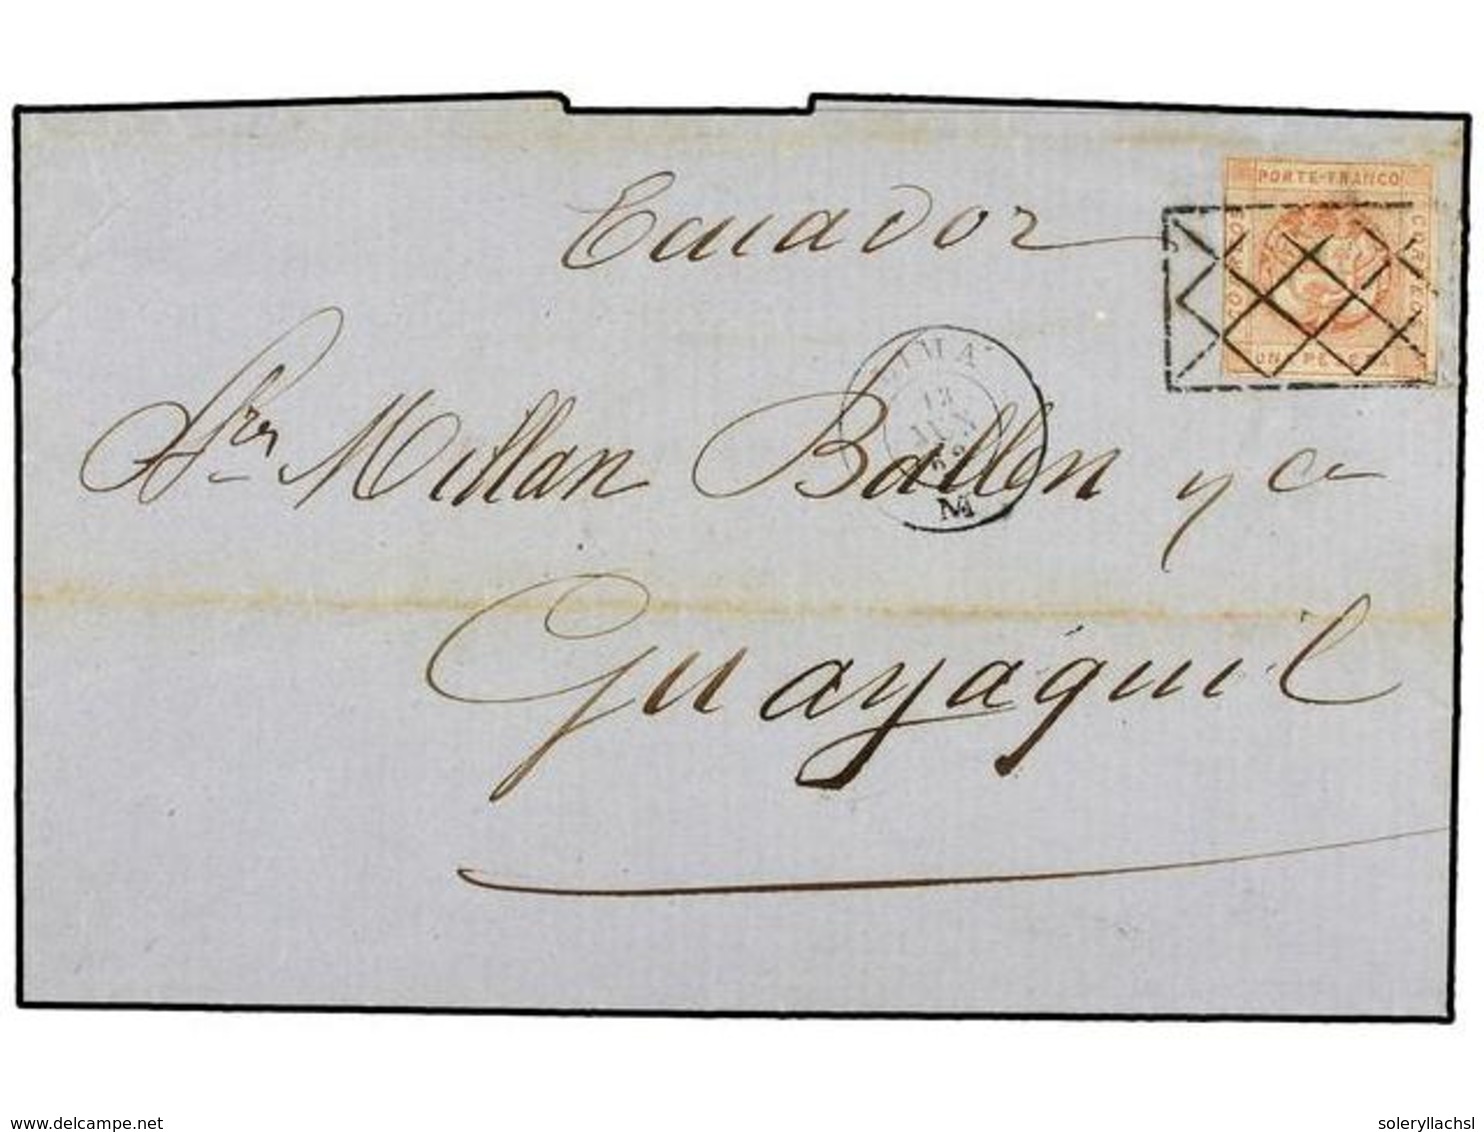 PORTE-FRANCO
CORREOS
UNA PESETA
Ecuador
LIMA
13
JUN
M
Sres Millan Ballen y ca
Guayaquil
delcampe.net
soleryllachsl